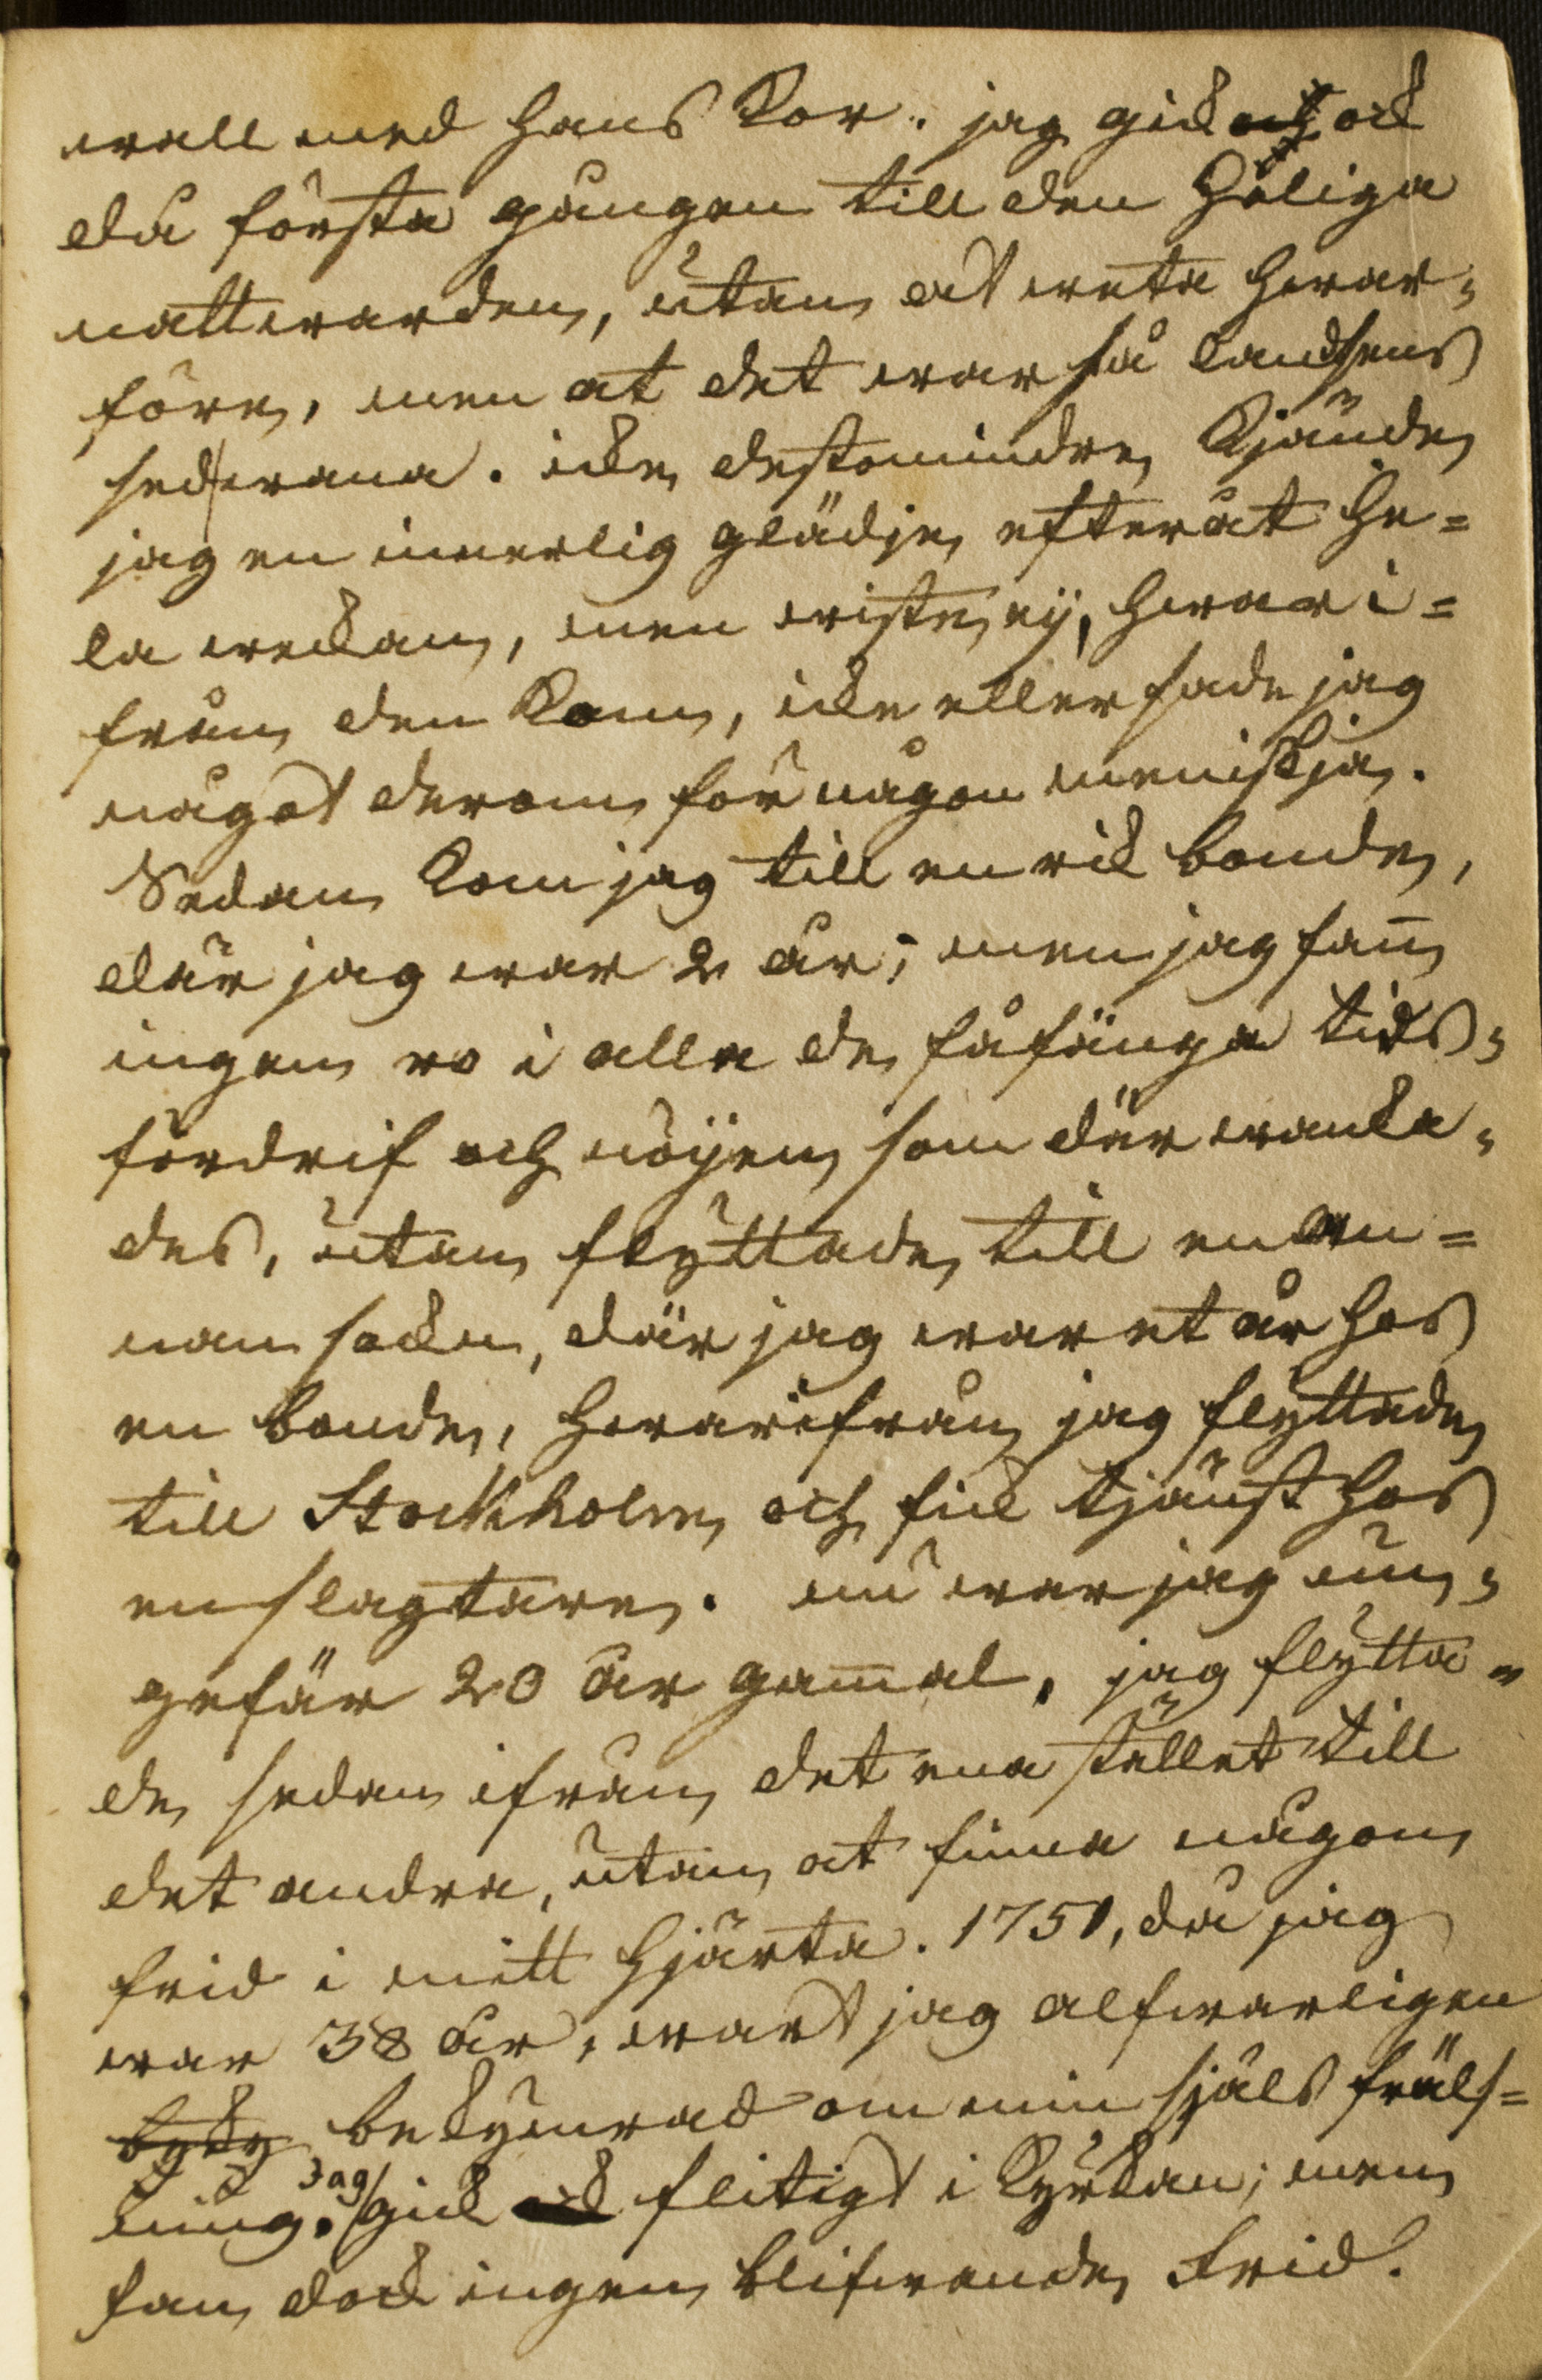 wall med hans Kor. jag gick ock
då första gången till den Heliga
nattwarden, utan at weta hwar=
före, men at det war så landsens
sedwana. icke destomindre kjände
jag en innerlig glädje efteråt he=
la weckan, men wiste ej, hwari=
från den kom, icke eller sade jag
något derom för någon meniskja.
Sedan kom jag till en rik bonde,
där jag war 2 år; men jag fan̄
ingen ro i alla de fåfänga tids=
fördrif och nöijen som där wanka=
des, utan flyttade till en an=
nan socken, där jag war et år hos
en bonde, hwarifrån jag flyttade
till Stockholm och fick tjänst hos
en slagtare. nu war jag un=
gefär 20 år gam̄al, jag flytta=
de sedan ifrån det ena stället till
det andra, utan at finna någon
frid i mitt hjärta. 1751, då jag
war 38 år, wart jag alfwarligen
bekymrad om min själs fräls=
ning. Jag gick flitigt i kyrkan; men
fan dock ingen blifwande frid.